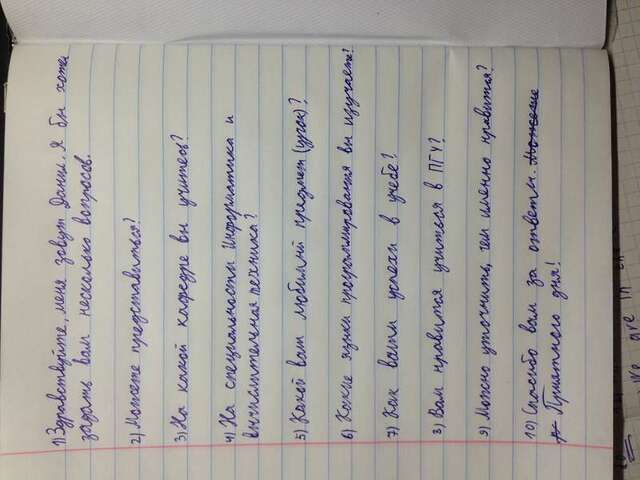 1) Здравствуйте, меня зовут Даниил. Я бы хотел
задать вам несколько вопросов.
2) Можете представиться?
3) На какой кафедре вы учитесь?
4) На специальности Информатика и
вычислительная техника?
5) Какой ваш любимый предмет (урок)?
6) Какие языки программирования вы изучаете?
7) Как ваши успехи в учебе?
8) Вам нравится учиться в ПГУ?
9) Можно уточнить, чем именно нравится?
10) Спасибо вам за ответы.
Приятного дня!